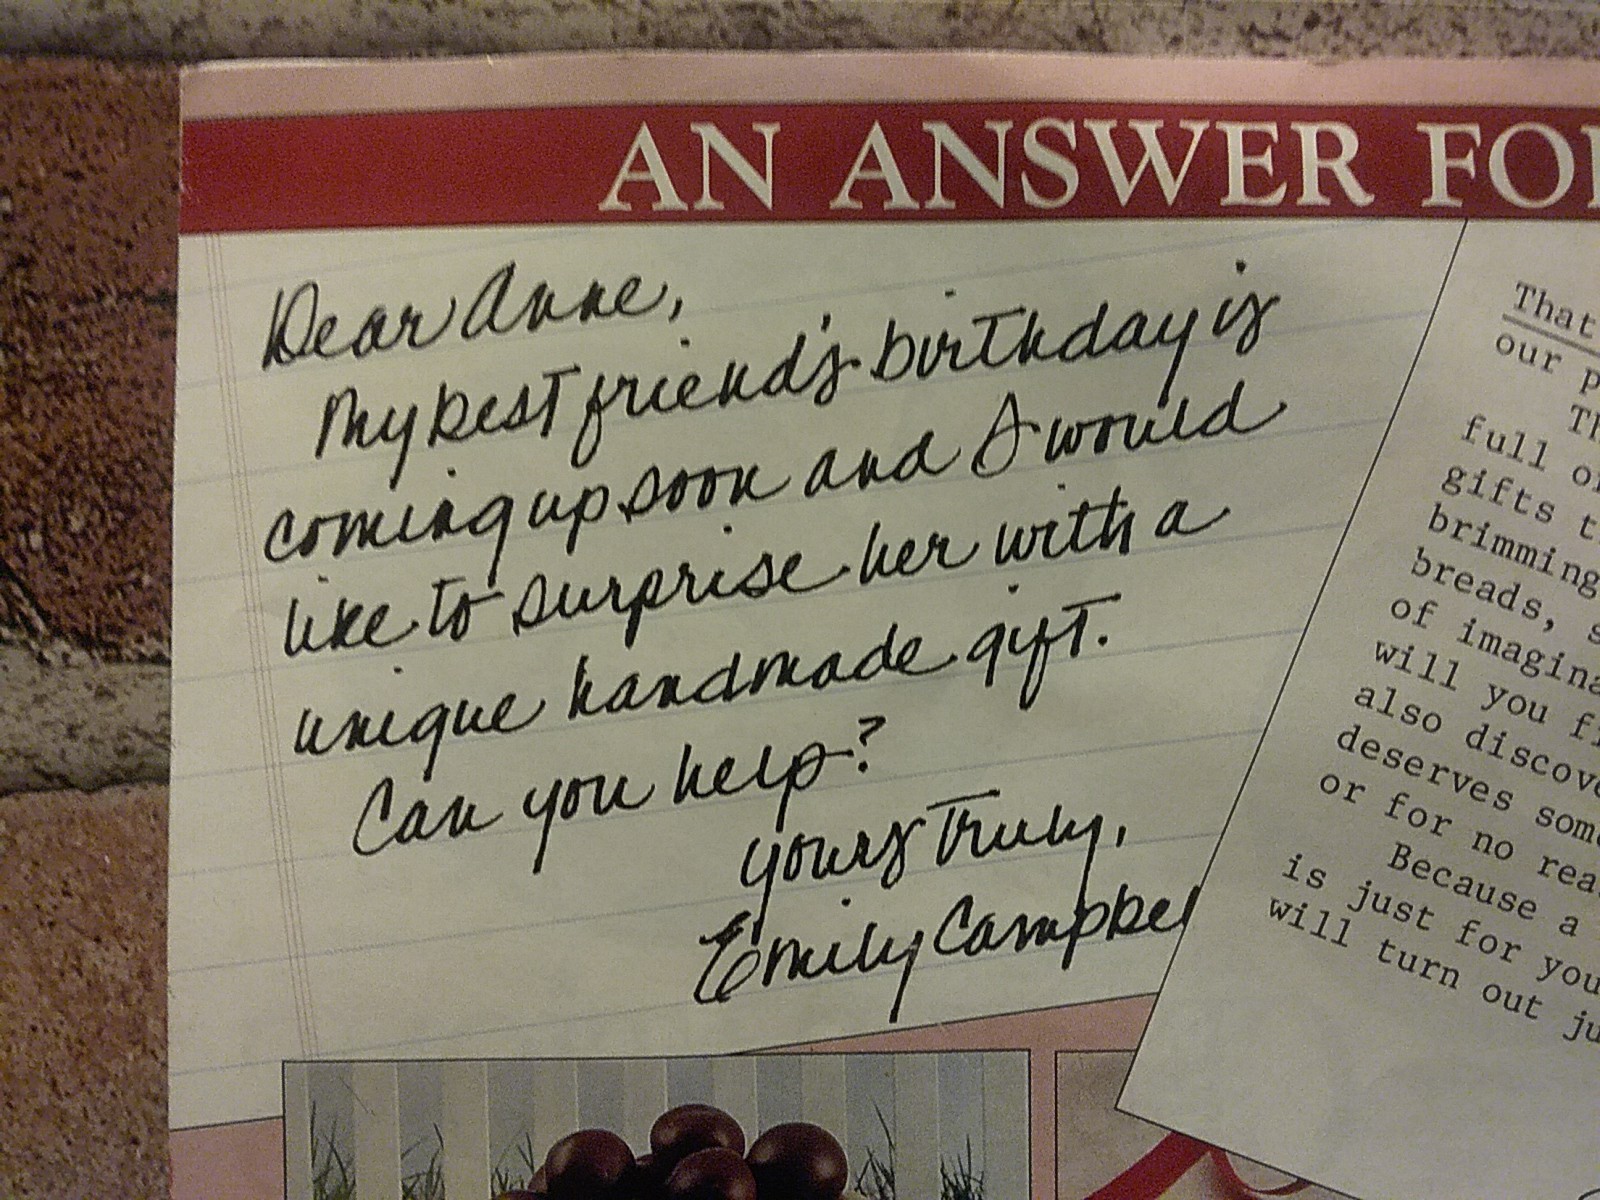 AN ANSWER FO
Dear Anne,
My best friend's birthday is
coming up soon and I would
like to surprise her with a
unique handmade gift.
Can you help?
Yours Truly,
Emily Campbel
That
our p
Th
full o
gifts t
brimming
breads, s
of imagina
will you fi
also discove
deserves some
or for no rea
Because a
is just for you
will turn out ju